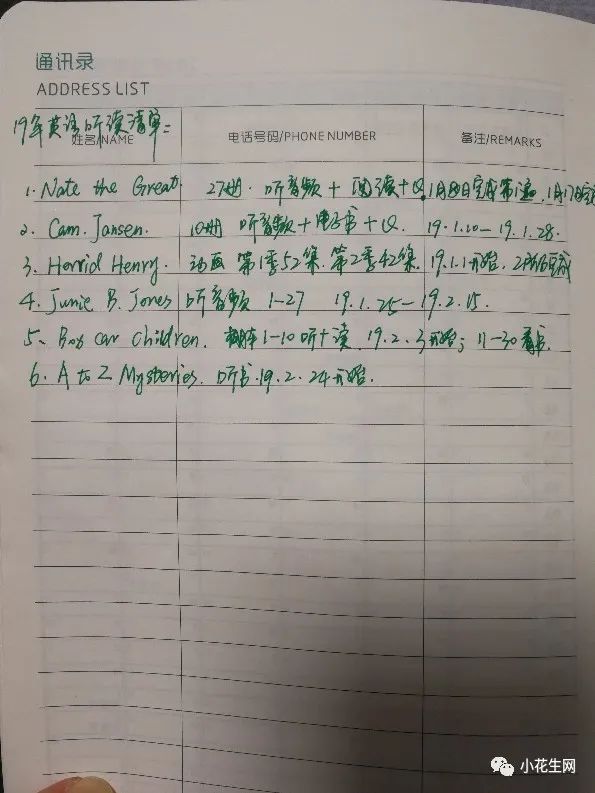 通讯录
ADDRESS LIST
19年英语听读清单:
姓名/NAME 电话号码/PHONE NUMBER 备注/REMARKS
1. Nate the Great. 27册. 听音频 + 阅读 + Q. 1月8日完成第一遍, 1月17日
2. Cam. Jansen. 10册 听音频 + 电子书 + Q. 19.1.10 — 19.1.28.
3. Horrid Henry. 动画 第1季52集. 第2季42集. 19.1.1开始,
4. Junie B. Jones 听音频 1-27 19.1.25 — 19.2.15.
5、Box car children. 1-10听+读. 19.2.3开始; 11-30看书.
6. A to Z Mysteries. 听书. 19.2.24开始.
小花生网